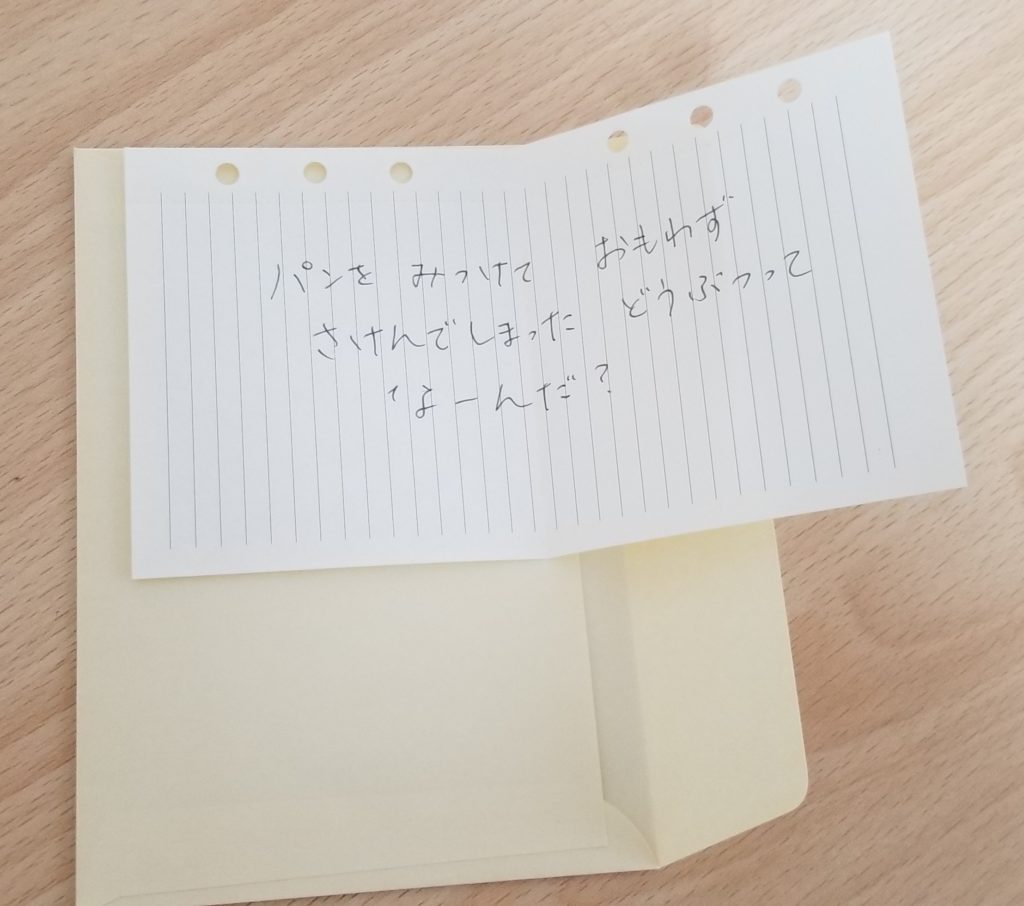 パンを みつけて おもわず
さけんでしまった どうぶつって
なーんだ?